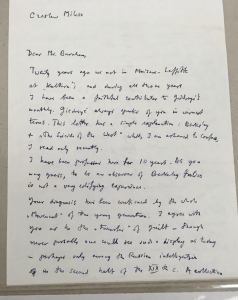 Czeslaw Milosz
Dear Mr. Burnham,
Twenty years ago we met in Maisons-Laffitte
at "Kultura's" and during all those years
I have been a faithful contributor to Giedroyc's
monthly. Giedroyc always speaks of you in warmest
terms. This letter has a simple explanation: Berkeley
+ "The Suicide of the West" which, I am ashamed to confess,
I read only recently.
I have been professor here for 10 years. As you
may guess, to be an observer of Berkeley follies
is not a very edifying experience.
Your diagnosis has been confirmed by the whole
"Movement" of the young generation. I agree with
you as to the "function of guilt" - though
never probably one could see such a display as today
- perhaps only among the Russian intelligentsia
in the second half of the XIX th c. A collection